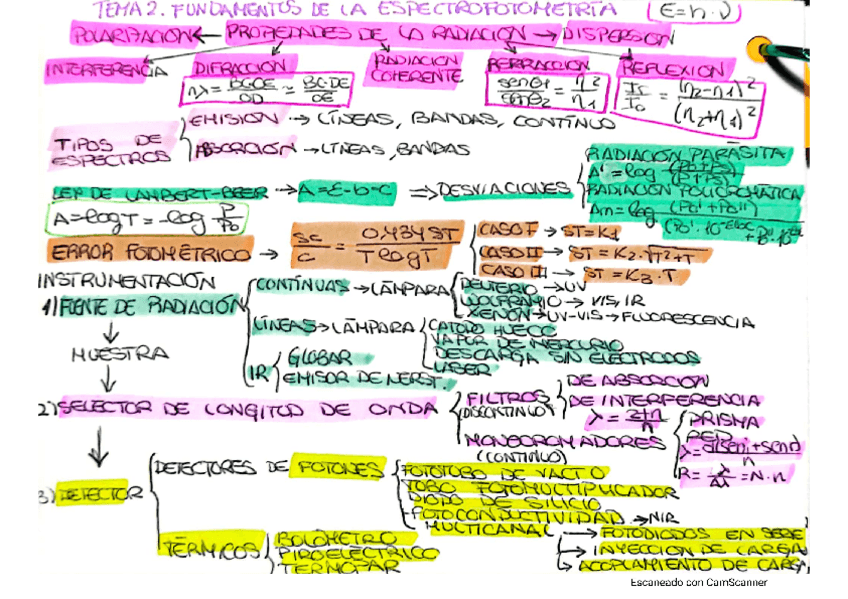 TEMA 2. FUNDAMENTOS DE LA ESPECTROFOTOMETRÍA E=h·ν
POLARIZACIÓN ← PROPIEDADES DE LA RADIACIÓN → DISPERSIÓN
INTERFERENCIA DIFRACCIÓN RADIACIÓN COHERENTE REFRACCIÓN REFLEXIÓN
nλ = BC·DE/OD = BC·DE/OE senθ1/senθ2 = η2/η1 Ir/I0 = (η2-η1)²/(η2+η1)²
TIPOS DE ESPECTROS
EMISIÓN → LÍNEAS, BANDAS, CONTÍNUO
ABSORCIÓN → LÍNEAS, BANDAS
LEY DE LAMBERT-BEER → A=ε·b·c ⇒ DESVIACIONES
RADIACIÓN PARÁSITA
A' = log (P0+Ps)/(P+Ps)
RADIACIÓN POLICROMÁTICA
Am = log (P0'+P0'')
A=logT=-log P/P0
ERROR FOTOMÉTRICO → Sc/C = 0,434ST/TlogT
CASO I → ST=K1
CASO II → ST=K2·√T²+T
CASO III → ST=K3·T
INSTRUMENTACIÓN
1) FUENTE DE RADIACIÓN
CONTÍNUAS → LÁMPARA
DEUTERIO → UV
WOLFRAMIO → VIS, IR
XENÓN → UV-VIS → FLUORESCENCIA
LÍNEAS → LÁMPARA
CATODO HUECO
VAPOR DE MERCURIO
DESCARGA SIN ELECTRODOS
LÁSER
IR
GLOBAR
EMISOR DE NERST.
↓
MUESTRA
↓
2) SELECTOR DE LONGITUD DE ONDA
FILTROS (DISCONTINUO)
DE ABSORCIÓN
DE INTERFERENCIA
MONOCROMADORES (CONTINUO)
PRISMA
RED
R= λ/Δλ =N·n
↓
3) DETECTOR
DETECTORES DE FOTONES
FOTOTUBO DE VACÍO
TUBO FOTOMULTIPLICADOR
DIODO DE SILICIO
FOTOCONDUCTIVIDAD → NIR
MULTICANAL
→ FOTODIODOS EN SERIE
→ INYECCIÓN DE CARGA
→ ACOPLAMIENTO DE CARGA
TÉRMICOS
BOLÓMETRO
PIROELÉCTRICO
TERMOPAR
Escaneado con CamScanner